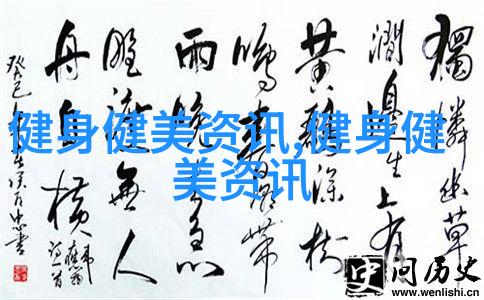 獨憐幽草
澗邊生上有
黄鸝深樹
鳴春潮帶
雨晚来急
野渡無人
舟自横
癸巳
健身健美资讯,健身健
美资讯
问历史
www.wenlishi.cn